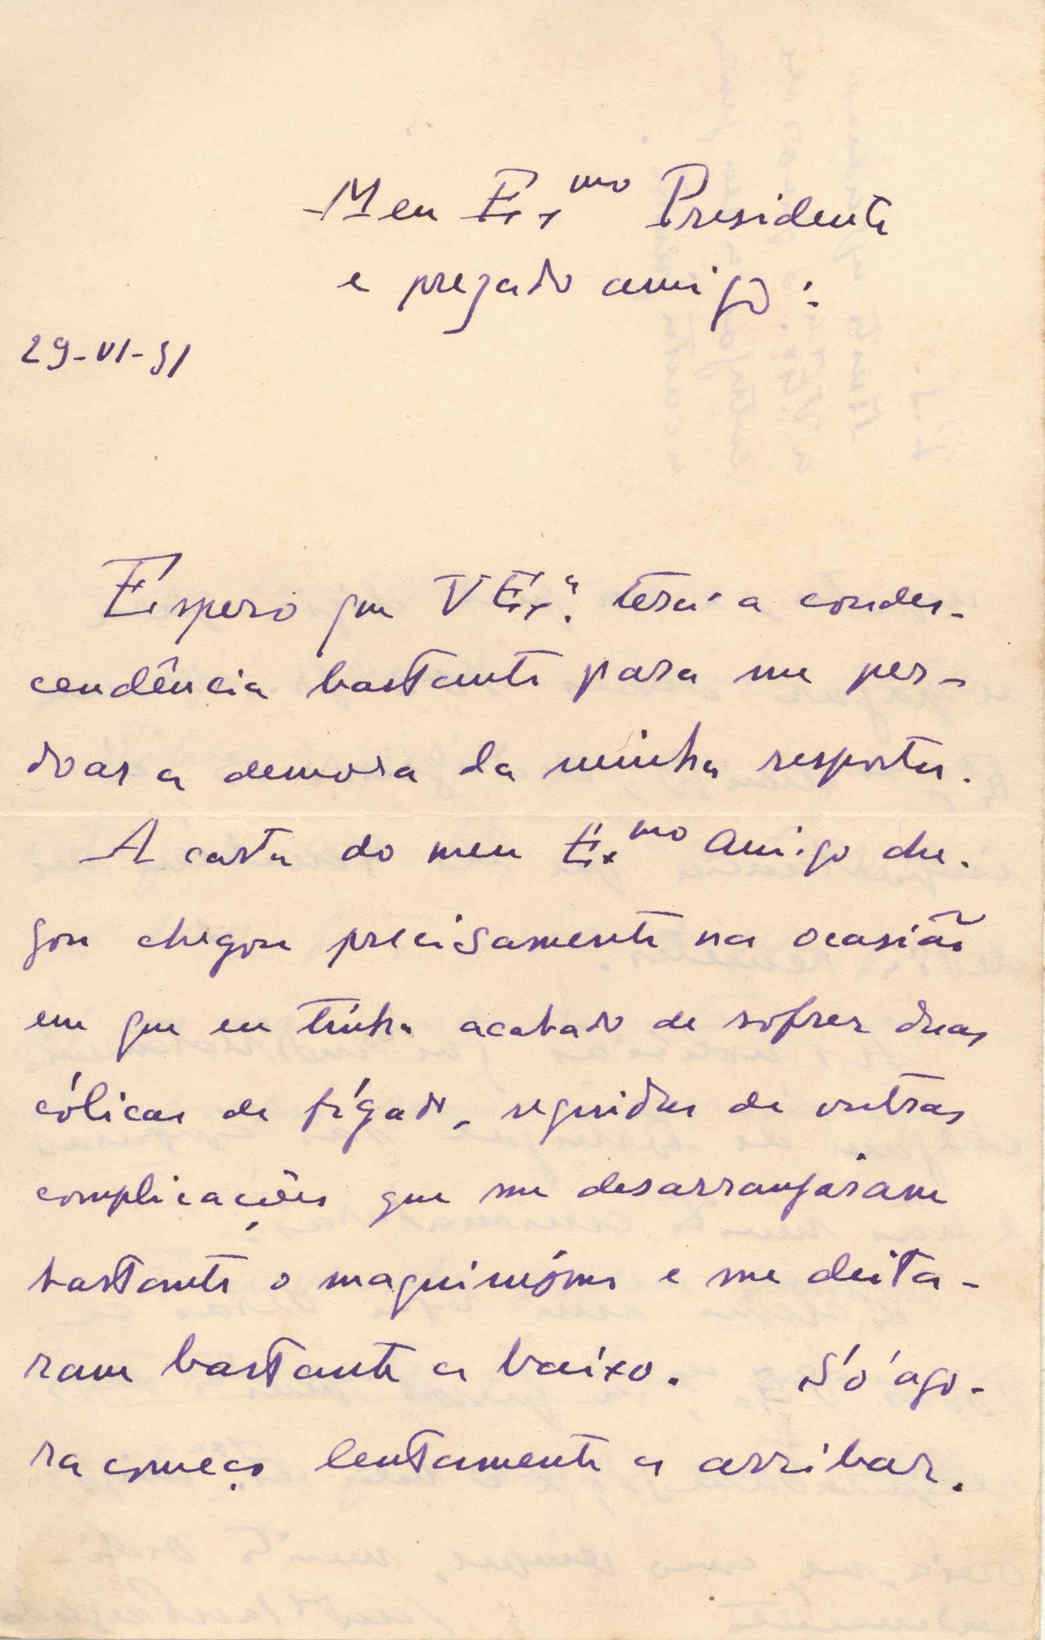 Meu Ex.mo Presidente
e prezado amigo:
29-VI-51
Espero que V Ex.ª terá a condes-
cendência bastante para me per-
doar a demora da minha resposta.
A carta do meu Ex.mo Amigo che-
gou chegou precisamente na ocasião
em que eu tinha acabado de sofrer duas
cólicas de fígado, seguidas de outras
complicações que me desarranjaram
bastante o maquinismo e me deita-
ram bastante a baixo. Só ago-
ra começo lentamente a arribar.